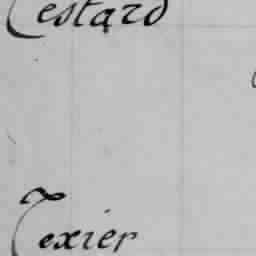 Testard
Texier